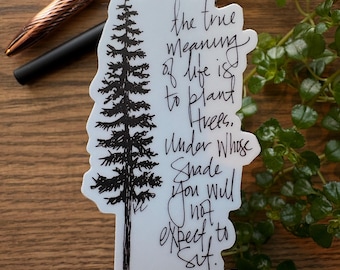 the true
meaning
of life is
to plant
trees,
under whose
shade
you will
not
expect to
sit.